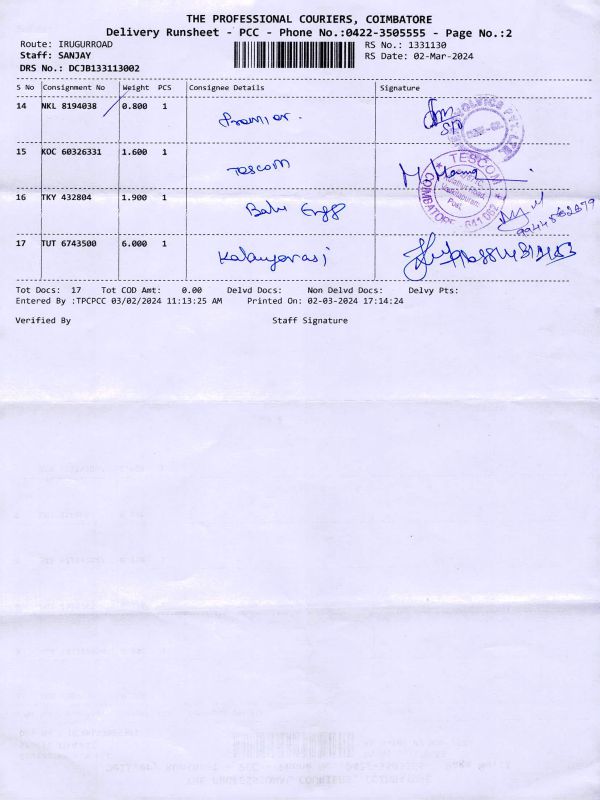 THE PROFESSIONAL COURIERS, COIMBATORE
Delivery Runsheet - PCC - Phone No.:0422-3505555 - Page No.:2
Route: IRUGURROAD
RS No.: 1331130
Staff: SANJAY
RS Date: 02-Mar-2024
DRS No.: DCJB133113002
S No Consignment No Weight PCS Consignee Details Signature
14 NKL 8194038 0.800 1 Premier.
15 KOC 60326331 1.600 1 Tescom
TESCOM
COIMBATORE - 641 062
16 TKY 432804 1.900 1 Babu Engg
17 TUT 6743500 6.000 1 Kalaiyarasi
Tot Docs: 17 Tot COD Amt: 0.00 Delvd Docs: Non Delvd Docs: Delvy Pts:
Entered By :TPCPCC 03/02/2024 11:13:25 AM Printed On: 02-03-2024 17:14:24
Verified By Staff Signature